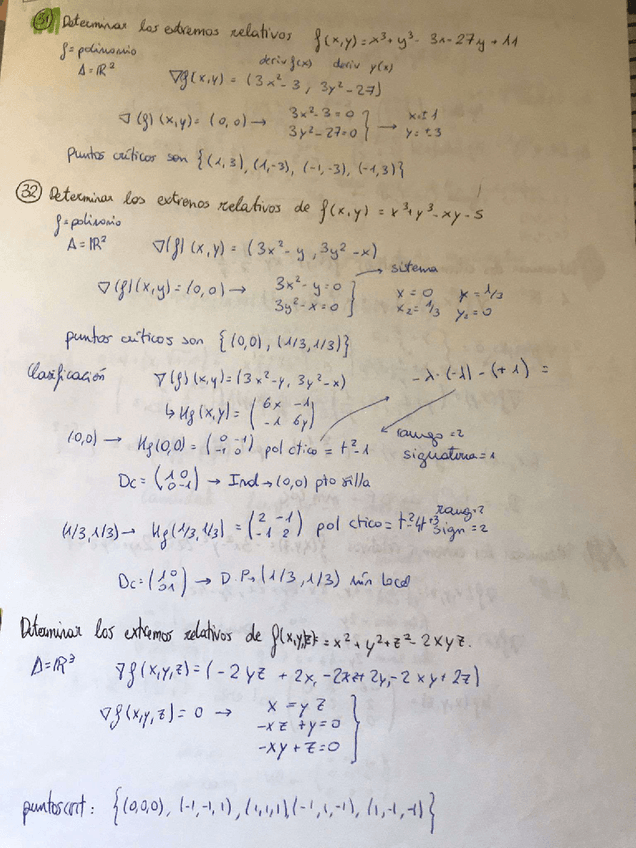 31 Determinar los extremos relativos f(x,y)=x³+y³-3x-27y+11
f=polinomio deriv f(x) deriv y(x)
Δ=ℝ² ∇f(x,y) = (3x²-3, 3y²-27)
∇(f)(x,y) = (0,0) → 3x²-3=0 } → x=±1
3y²-27=0 y=±3
puntos críticos son {(1,3), (1,-3), (-1,-3), (-1,3)}
32 Determinar los extremos relativos de f(x,y) = x³+y³-xy-5
f=polinomio
Δ=ℝ² ∇(f)(x,y) = (3x²-y, 3y²-x)
→ sistema
∇(f)(x,y)=(0,0) → 3x²-y=0 } x=0 y=1/3
3y²-x=0 x₂=1/3 y₂=0
puntos críticos son {(0,0), (1/3,1/3)}
Clasificación ∇(f)(x,y)=(3x²-y, 3y²-x) -λ·(-λ)-(+1) =
↳ Hf(x,y) = (6x -1
-1 6y)
(0,0) → Hf(0,0) = (0 -1 pol ctico = t²-1 rango=2
-1 0) signatura=1
Dc = (1 0 → Ind → (0,0) pto silla
0 -1)
(1/3,1/3) → Hf(1/3,1/3) = (2 -1 pol ctico = t²-4t+3 rang=2
-1 2) sign=2
Dc = (1 0 → D.P → (1/3,1/3) mín local
0 1)
Determinar los extremos relativos de f(x,y,z) = x²+y²+z²-2xyz.
Δ=ℝ³ ∇f(x,y,z) = (-2yz + 2x, -2xz+2y, -2xy+2z)
∇f(x,y,z)=0 → x=yz }
-xz+y=0
-xy+z=0
puntos crit: {(0,0,0), (-1,-1,1), (1,1,1), (-1,1,-1), (1,-1,-1)}